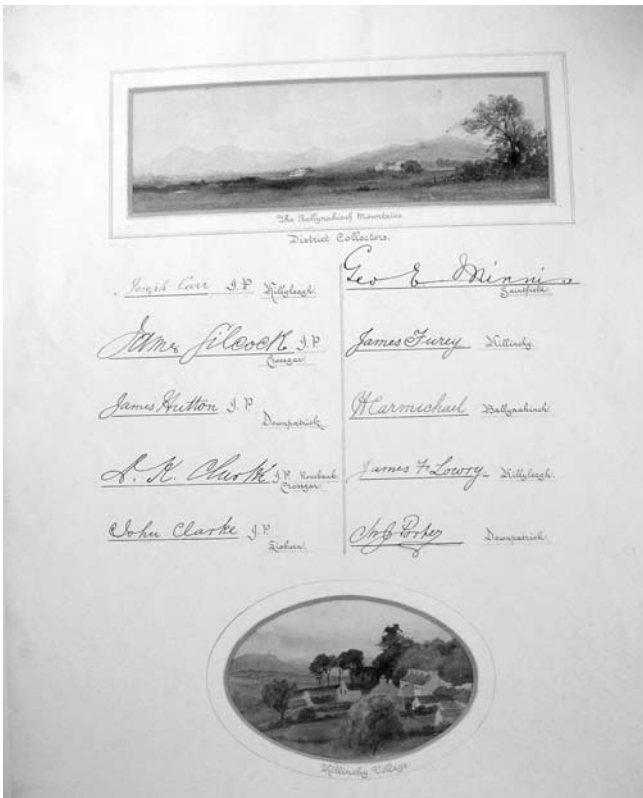 The Ballynahinch Mountains.
District Collectors.
Joseph Carr J.P. Killyleagh
James Silcock J.P.
Crossgar
James Hutton J.P.
Downpatrick
Clarke J.P. Rosebank
Crossgar
John Clarke J.P.
Lisburn
Geo E
Saintfield
James Furey Killinchy
H Carmichael Ballynahinch
James F Lowry Killyleagh
Porter Downpatrick
Killinchy Village